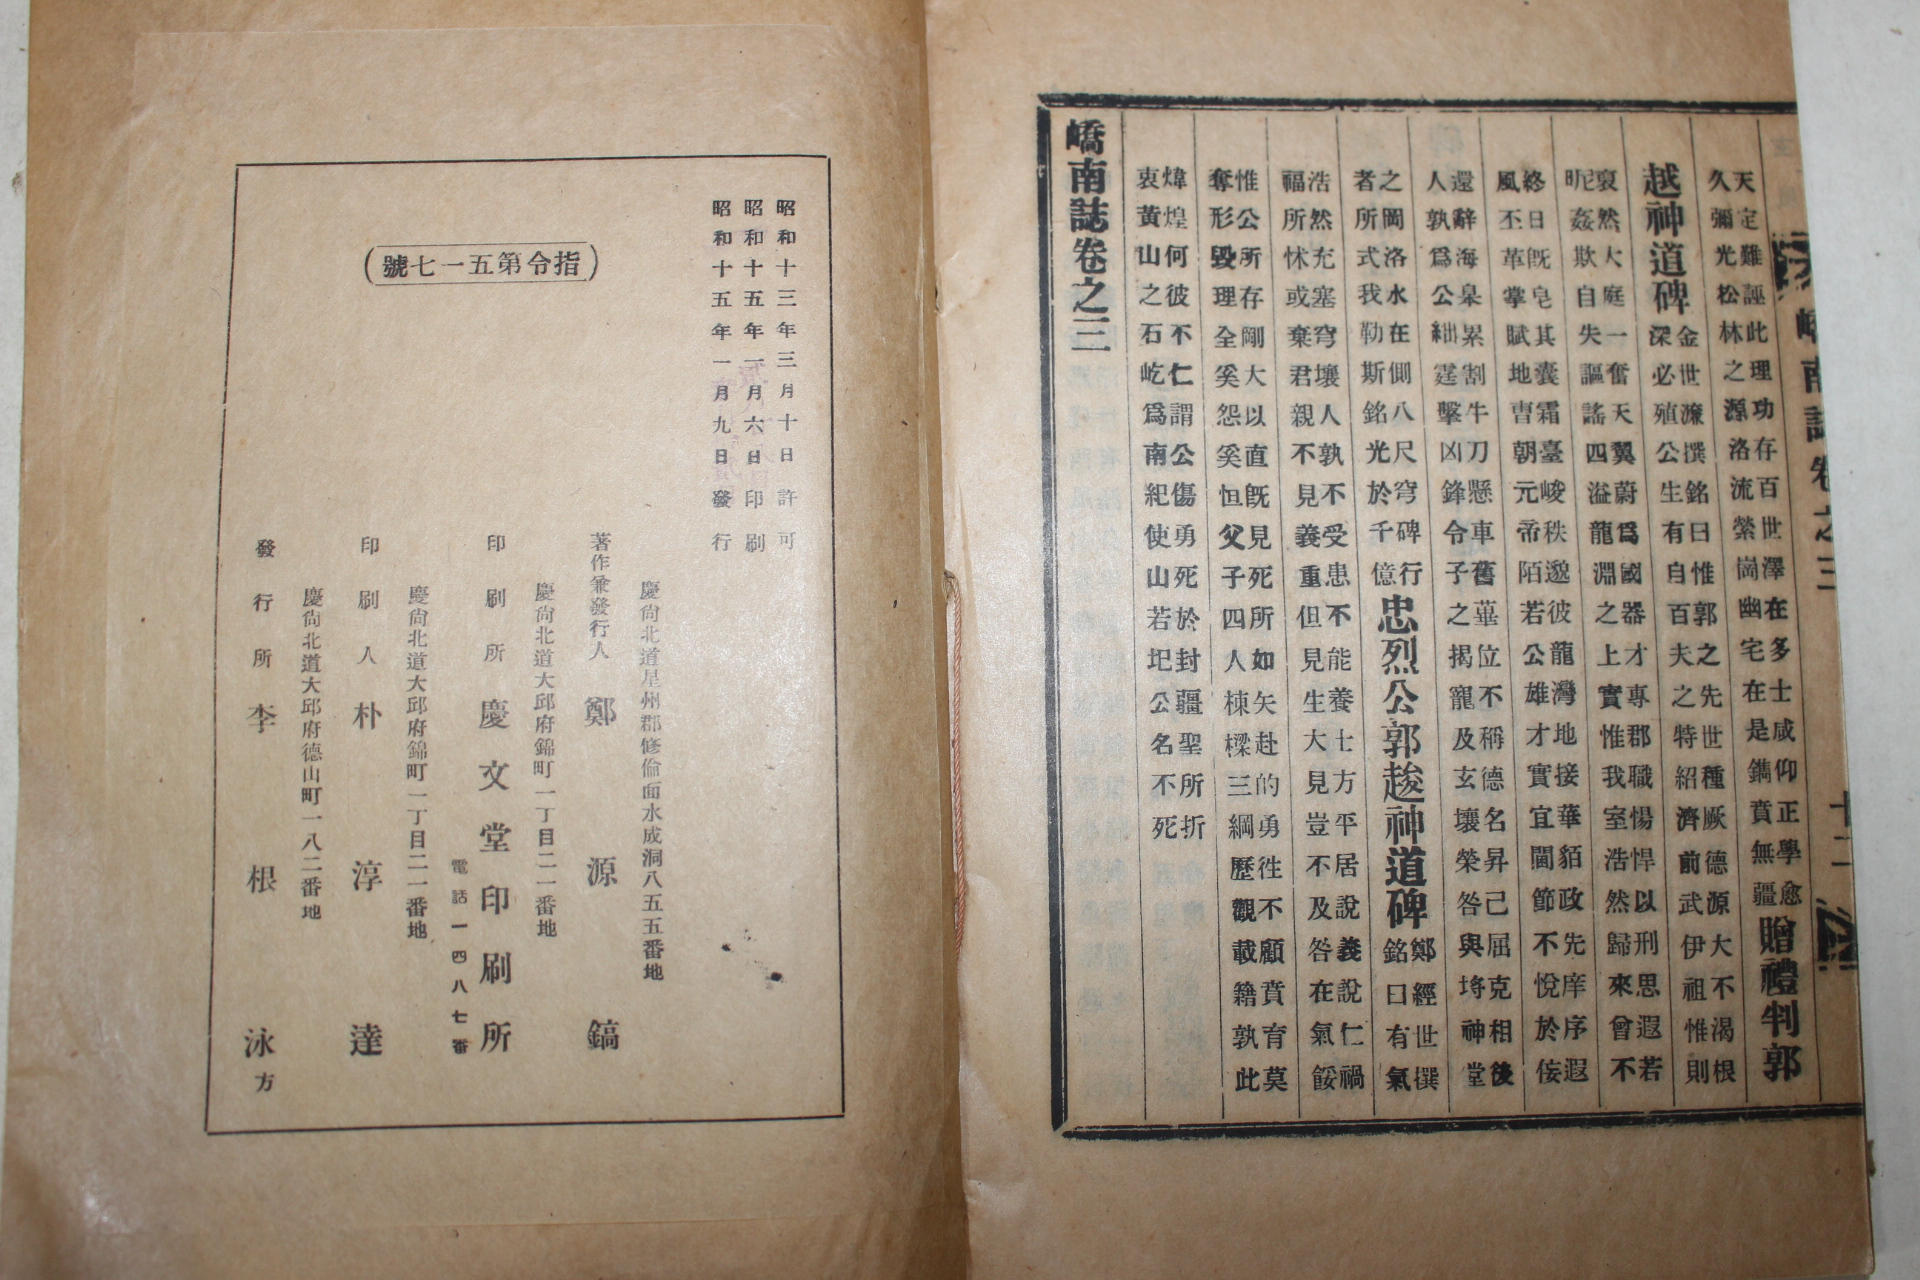 嶠南誌卷之三 十二
天定難誣此理功存百世澤在多士咸仰正學愈
久彌光松林之源洛流縈崗幽宅在是鐫賁無疆
贈禮判郭
越神道碑
金世濂撰銘曰惟郭之先世種厥德源大不渴根
深必殖公生有自百夫之特紹濟前武伊祖惟則
裒然大庭一奮天翼蔚爲國器才專郡職惕悍以刑思遐若
昵姦欺自失謳謠四溢龍淵之上實惟我室浩然歸來曾不
終日旣皂其囊霜臺峻秩邈彼龍灣地接華貊政先庠序遐
風丕革掌賦地曺朝元帝陌若公雄才實宜閫節不悅於侫
還辭海臬累割牛刀懸車舊蓽位不稱德名昇己屈克相後
人孰爲公絀霆擊凶鋒令子之揭寵及玄壤榮咎與埓神堂
之岡洛水在側八尺穹碑行
者所式我勒斯銘光於千億
忠烈公郭䞭神道碑
鄭經世撰
銘曰有氣
浩然充塞穹壤人孰不受患不能養士方平居說義說仁禍
福所怵或棄君親不見義重但見生大見豈不及咎在氣餒
惟公所存剛大以直旣見死所如矢赴的勇徃不顧賁育莫
奪形毀理全奚怨奚恒父子四人棟樑三綱歷觀載籍孰此
煒煌何彼不仁謂公傷勇死於封疆聖所折
衷黃山之石屹爲南紀使山若圯公名不死
嶠南誌卷之三
昭和十三年三月十日許可
昭和十五年一月六日印刷
昭和十五年一月九日發行
指令第五一七號
慶尙北道星州郡修倫面水成洞八五五番地
著作兼發行人 鄭源鎬
慶尙北道大邱府錦町一丁目二一番地
印刷所 慶文堂印刷所
電話一四八七番
慶尙北道大邱府錦町一丁目二一番地
印刷人 朴淳達
慶尙北道大邱府德山町一八二番地
發行所 李根泳方